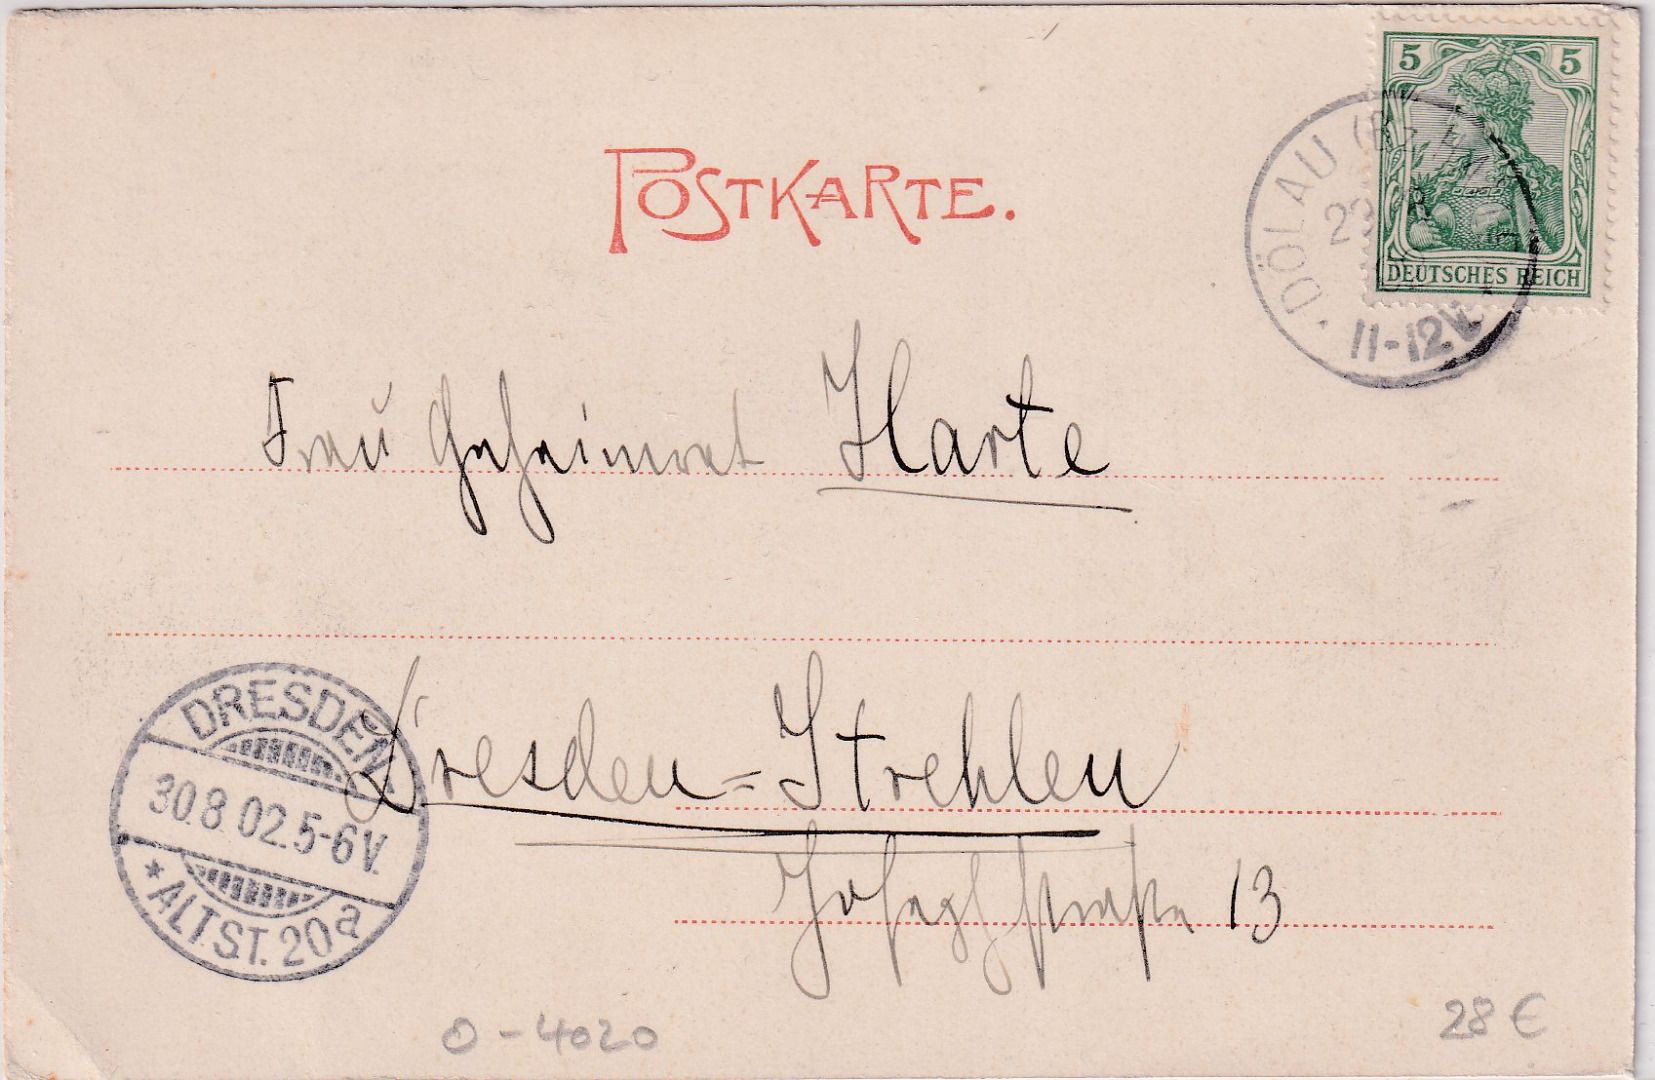 POSTKARTE.
5 5
DEUTSCHES REICH
DÖLAU (Bz. HALLE
11-12V.
Frau Geheimrat Harte
DRESDEN
30.8.02.5-6V.
* ALTST. 20a
Dresden=Strehlen
Josephstraße 13
0-4020
28 €